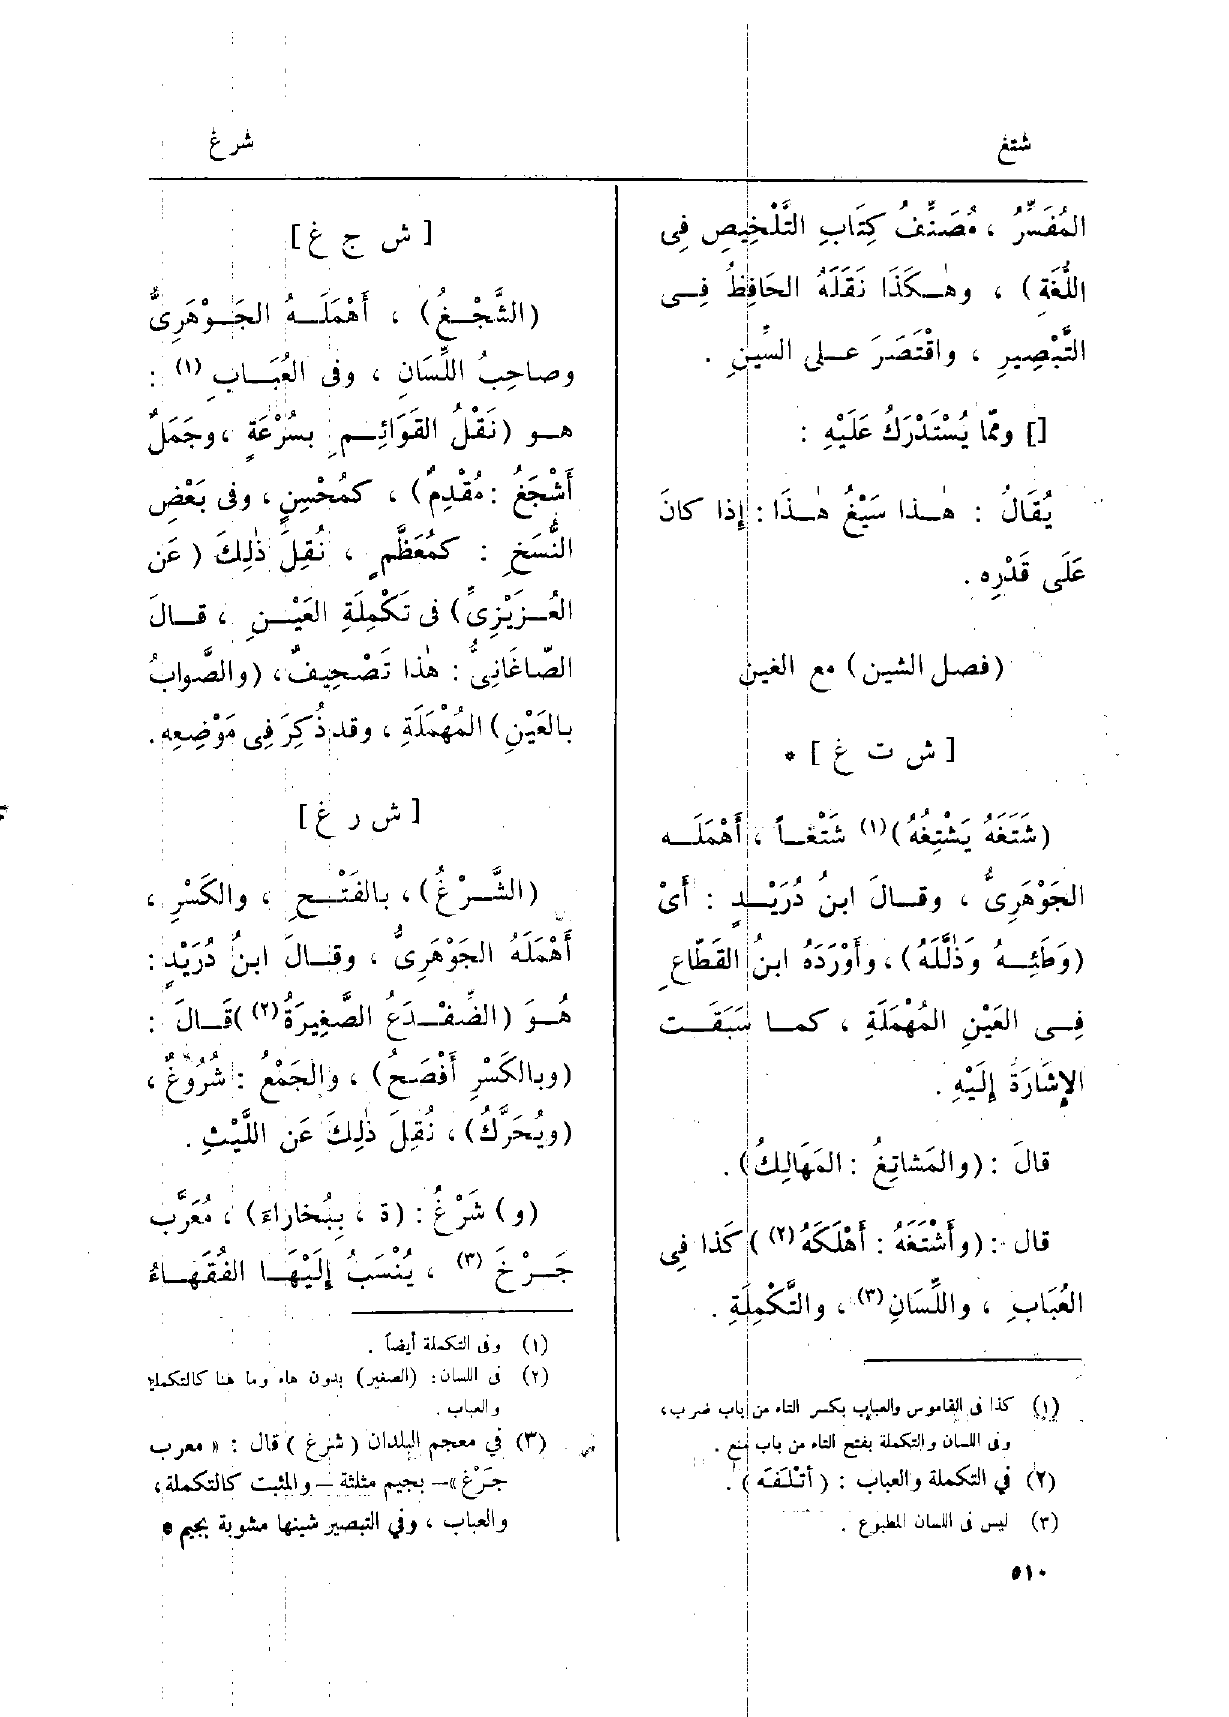 شتغ
شرغ
المُفَسِّرُ ، مُصَنِّفُ كِتَابِ التَّلْخِيصِ فِى
اللُّغَةِ) ، وهٰكَذَا نَقَلَهُ الحَافِظُ فِى
التَّبْصِيرِ ، واقْتَصَرَ على السِّينِ .
[] وممّا يُسْتَدْرَكُ عَلَيْهِ :
يُقَالُ : هٰذا سَيْغُ هٰذَا : إِذا كانَ
عَلَى قَدْرِه .
(فصل الشين) مع الغين
[ ش ت غ ] *
(شَتَغَهُ يَشْتِغُهُ)(١) شَتْغاً ، أَهْمَلَه
الجَوْهَرِىُّ ، وقالَ ابنُ دُرَيْدٍ : أَىْ
(وَطِئِهُ وَذَلَّلَهُ) ، وأَوْرَدَهُ ابنُ القَطّاعِ
فِى العَيْنِ المُهْمَلَةِ ، كما سَبَقَت
الإِشَارَةُ إِلَيْهِ .
قالَ : (والمَشاتِغُ : المَهَالِكُ) .
قال : (وأَشْتَغَهُ : أَهْلَكَهُ(٢)) كَذا فِى
العُبَابِ ، واللِّسَانِ(٣) ، والتَّكْمِلَةِ .
(١) كذا فى القاموس والعباب بكسر التاء من باب ضرب ،
وفى اللسان والتكملة بفتح التاء من باب منع .
(٢) في التكملة والعباب : (أتْلَفَه) .
(٣) ليس فى اللسان المطبوع .
٥١٠
[ ش ج غ ]
(الشَّجْغُ) ، أَهْمَلَهُ الجَوْهَرِىُّ
وصاحِبُ اللِّسَانِ ، وفى العُبَابِ(١) :
هو (نَقْلُ القَوَائِمِ بسُرْعَةٍ ، وجَمَلٌ
أَشْجَغُ : مُقْدِمٌ) ، كمُحْسِنٍ ، وفى بَعْضِ
النُّسَخِ : كمُعَظَّمٍ ، نُقِلَ ذٰلِكَ (عَن
العُزَيْزِىِّ) فى تَكْمِلَةِ العَيْنِ ، قالَ
الصّاغَانِىُّ : هٰذا تَصْحِيفٌ ، (والصَّوابُ
بالعَيْنِ) المُهْمَلَةِ ، وقد ذُكِرَ فِى مَوْضِعِه .
[ ش ر غ ]
(الشَّرْغُ) ، بالفَتْحِ ، والكَسْرِ ،
أَهْمَلَهُ الجَوْهَرِىُّ ، وقالَ ابنُ دُرَيْدٍ :
هُوَ (الضِّفْدَعُ الصَّغِيرَةُ(٢)) قَالَ :
(وبالكَسْرِ أَفْصَحُ) ، والجَمْعُ : شُرُوغٌ ،
(ويُحَرَّكُ) ، نُقِلَ ذٰلِكَ عَن اللَّيْثِ .
(و) شَرْغُ : (ة ، بِبُخاراءَ) ، مُعَرَّب
جَرْخَ(٣) ، يُنْسَبُ إِلَيْهَا الفُقَهاءُ
(١) وفى التكملة أيضاً .
(٢) فى اللسان : (الصغير) بدون هاء وما هنا كالتكملة
والعباب .
(٣) في معجم البلدان (شرغ) قال : « معرب
جَرْغ » – بجيم مثلثة – والمثبت كالتكملة ،
والعباب ، وفي التبصير شينها مشوبة بجيم *